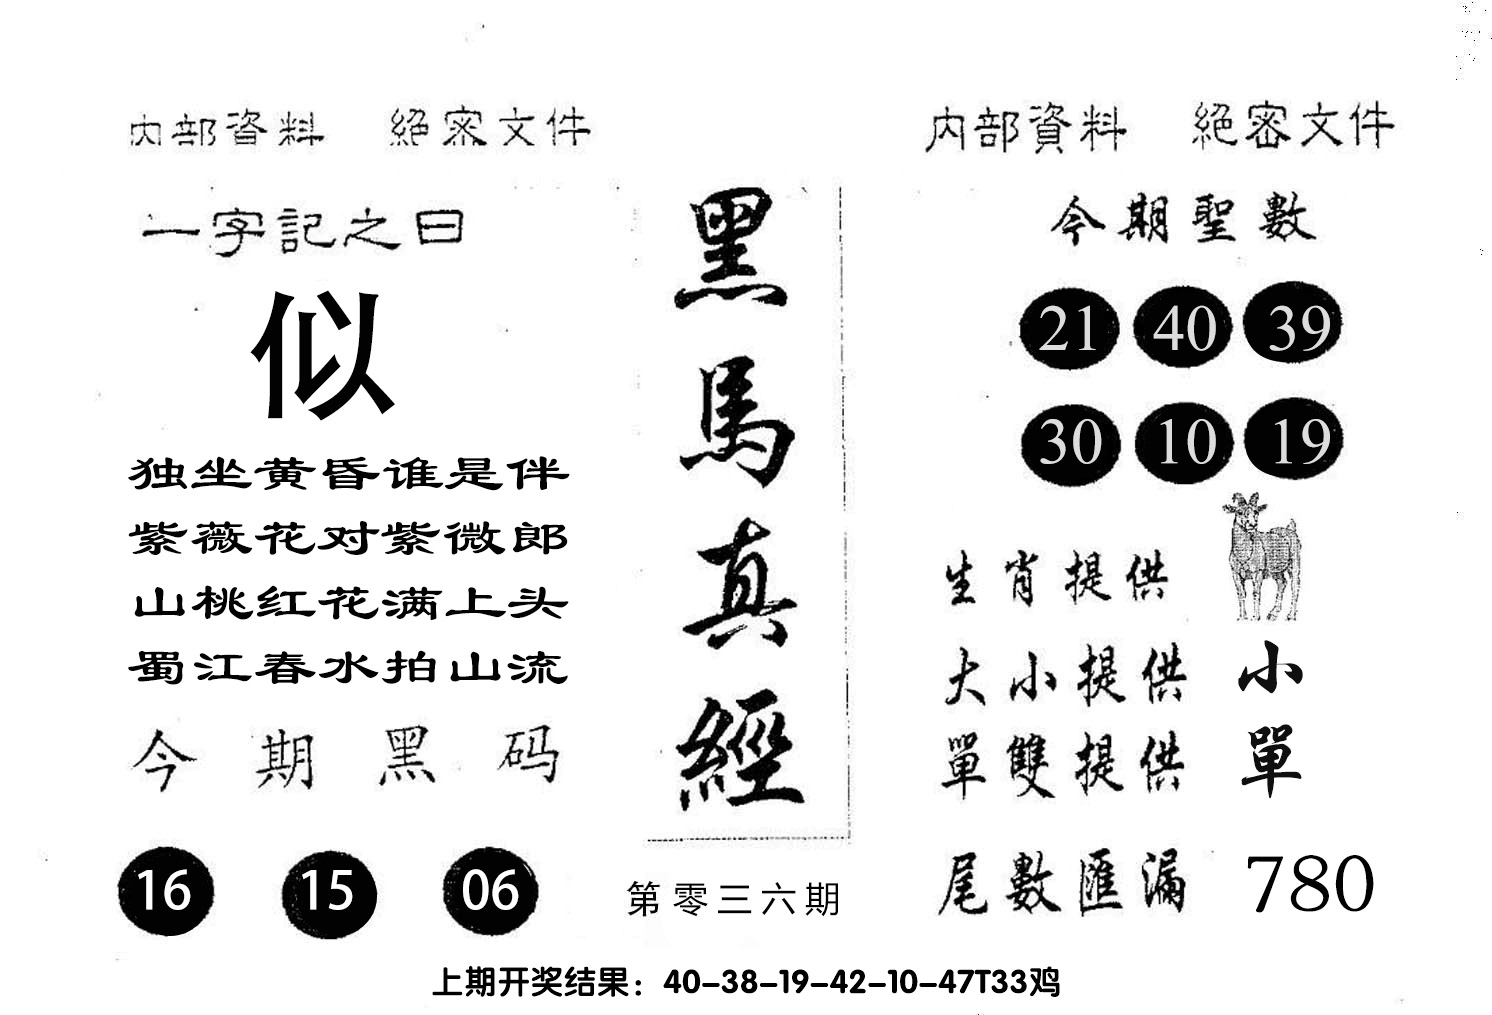 内部資料 絕密文件
一字記之曰
似
独坐黄昏谁是伴
紫薇花对紫微郎
山桃红花满上头
蜀江春水拍山流
今期黑码
16 15 06
黑馬真經
第零三六期
内部資料 絕密文件
今期聖數
21 40 39
30 10 19
生肖提供
大小提供 小
單雙提供 單
尾數匯漏 780
上期开奖结果：40-38-19-42-10-47T33鸡